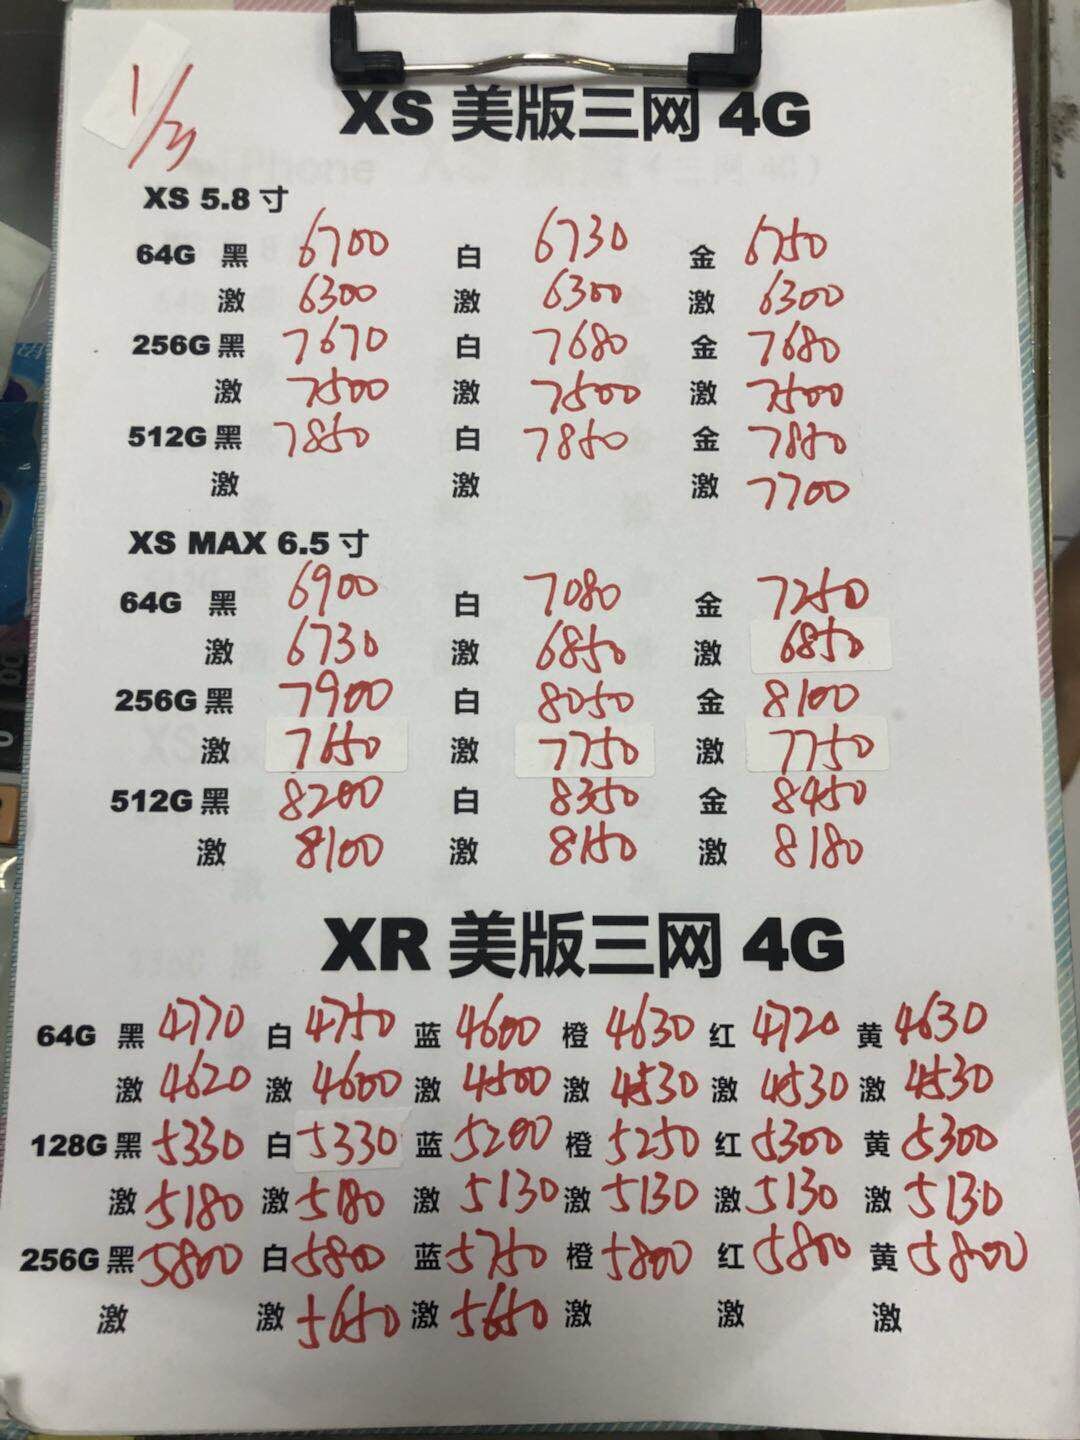 1/3
XS 美版三网 4G
XS 5.8 寸
64G 黑 6700 白 6730 金 6750
激 6300 激 6300 激 6300
256G 黑 7670 白 7680 金 7680
激 7500 激 7500 激 7500
512G 黑 7850 白 7850 金 7850
激 激 激 7700
XS MAX 6.5 寸
64G 黑 6900 白 7080 金 7250
激 6730 激 6850 激 6850
256G 黑 7900 白 8050 金 8100
激 7650 激 7750 激 7750
512G 黑 8200 白 8350 金 8450
激 8100 激 8150 激 8180
XR 美版三网 4G
64G 黑 4770 白 4750 蓝 4600 橙 4630 红 4720 黄 4630
激 4620 激 4600 激 4500 激 4530 激 4530 激 4530
128G 黑 5330 白 5330 蓝 5200 橙 5250 红 5300 黄 5300
激 5180 激 5180 激 5130 激 5130 激 5130 激 5130
256G 黑 5800 白 5800 蓝 5750 橙 5800 红 5800 黄 5800
激 激 5650 激 5650 激 激 激